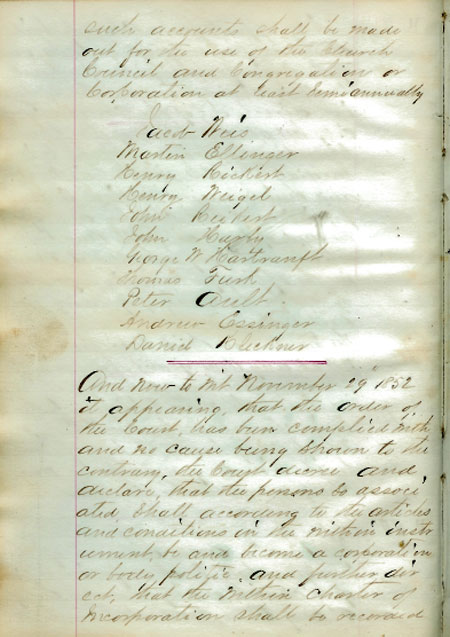 such accounts shall be made
out for the use of the Church
Council and Congregation or
Corporation at least Semiannually
Jacob Weis
Martin Ellinger
Henry Rickert
Henry Weigel
John Reikert
John Harly
George W Hartranft
Thomas Funk
Peter Ault
Andrew Essinger
Daniel Kleckner
And now to wit November 29" 1852
it appearing, that the order of
the Court has been complied with
and no cause being shown to the
contrary, the Court decree and
declare, that the persons so associ
ated shall according to the articles
and conditions in the within instr
ument, be and become a corporation
or body politic, and further dir
ect, that the within Charter of
Incorporation shall be recorded